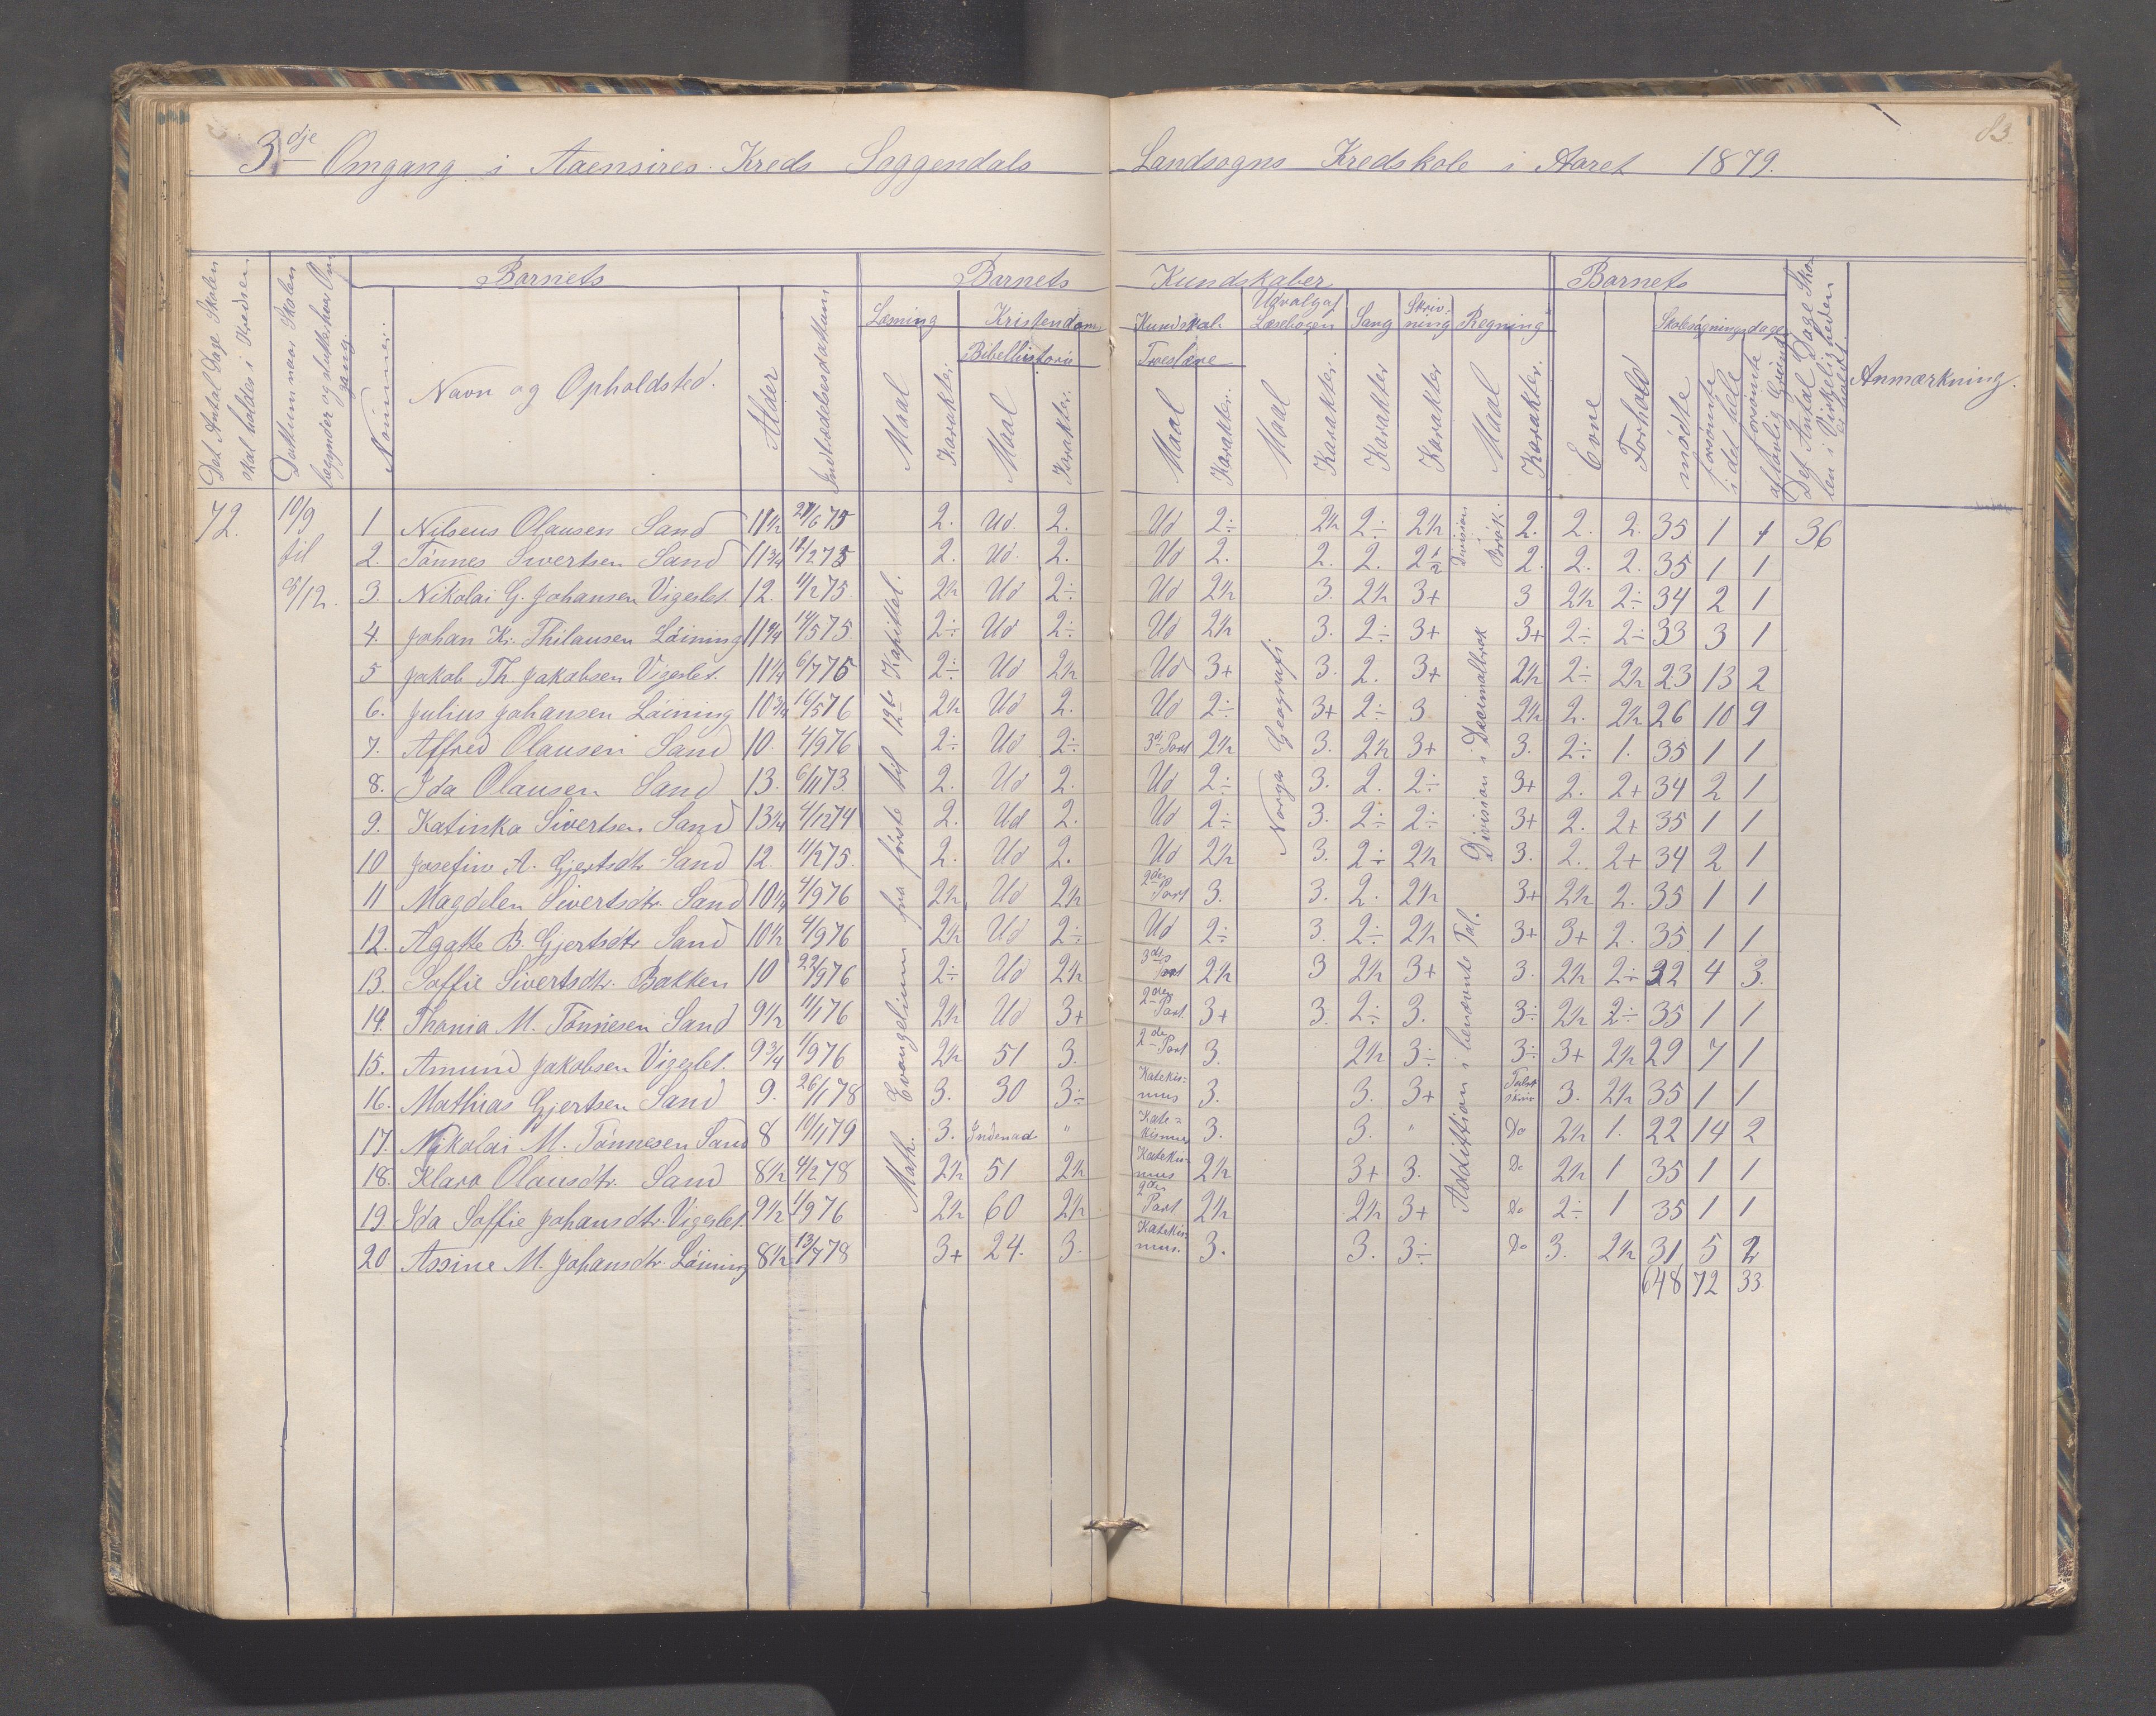 83.
3dje Omgang i Aaensires Kreds Soggendals Landsogns Kredskole i Aaret 1879.
Det Antal Dage Skolen skal holdes i Kredsen
Dattum naar Skolen begynder og slutter hver Omgang.
Barnets
Nummer.
Navn og Opholdsted.
Alder
Indtrædelsesdattum
Barnets Kundskaber
Læsning
Maal
Karakter.
Kristendoms Kundskab.
Bibelhistorie
Maal
Karakter.
Troeslære
Maal
Karakter.
Udvalg af Læsebogen
Maal
Karakter.
Sang
Karakter
Skrivning
Karakter
Regning
Maal
Karakter.
Barnets
Evne
Forhold
Skolesøgningsdage
mødte
forsømte i det hele
forsømte af lovlig Grund
Det Antal Dage Skolen i Virkeligheden er holdt.
Anmærkning.
72. 10/9 til 5/12. 36
Evangelium fra første til 12te Kapitel.
Norges Geografi.
Division i Brøk.
Division i Decimalbrøk
Addittion i benævnte Tal.
1 Nilseus Olausen Sand 11 1/2 21/6 75 2. Ud. 2. Ud 2÷ 2 1/2 2÷ 2 1/2 2. 2. 2. 35 1 1
2. Tønnes Sivertsen Sand 11 3/4 12/2 75 2. Ud. 2. Ud 2. 2. 2. 2 1/2 2. 2. 2. 35 1 1
3. Nikolai G. Johansen Vigeslet. 12. 4/2 75 2 1/2 Ud 2÷ Ud 2 1/2 3. 2 1/2 3+ 3 2 1/2 2÷ 34 2 1
4. Johan K. Thilausen Løining 11 3/4 14/5 75 2÷ Ud 2÷ Ud 2 1/2 3. 2÷ 3+ 3+ 2÷ 2÷ 33 3 1
5 Jakob Th. Jakobsen Vigeslet. 11 1/4 6/7 75 2÷ Ud 2 1/2 Ud 3+ 3. 2. 3+ 2 1/2 2÷ 2 1/2 23 13 2
6. Julius Johansen Løining 10 3/4 16/5 76 2 1/2 Ud 2. Ud 2÷ 3+ 2÷ 3 2 1/2 2. 2 1/2 26 10 9
7. Alfred Olausen Sand 10. 4/9 76 2÷ Ud 2÷ 3de Part 2 1/2 3. 2 1/2 3+ 3. 2÷ 1. 35 1 1
8. Ida Olausen Sand 13. 6/11 73. 2. Ud 2. Ud 2÷ 3. 2. 2÷ 3+ 2. 2+ 34 2 1
9. Katinka Sivertsen Sand 13 1/4 4/12 74 2. Ud 2. Ud 2÷ 3. 2÷ 2÷ 3+ 2. 2+ 35 1 1
10 Josefine A. Gjertsdtr Sand 12. 11/2 75. 2. Ud 2. Ud 2 1/2 3. 2÷ 2 1/2 3. 2. 2+ 34 2 1
11 Magdelen Sivertsdtr. Sand 10 1/4 4/9 76 2 1/2 Ud 2 1/2 2den Part 3. 3. 2. 2 1/2 3+ 2 1/2 2. 35 1 1
12. Agatte B. Gjertsdtr Sand 10 1/2 4/9 76 2 1/2 Ud 2÷ Ud 2÷ 3. 2÷ 2 1/2 3+ 3+ 2. 35 1 1
13. Soffie Sivertsdtr. Bakken 10 22/9 76 2÷ Ud 2 1/2 3die Part 2 1/2 3 2 1/2 3+ 3. 2 1/2 2÷ 32 4 3.
14. Thonia M. Tønnesen Sand 9 1/2 11/1 76 2 1/2 Ud 3+ 2den Part 3+ 3. 2÷ 3. 3÷ 2 1/2 2÷ 35 1 1
15. Amund Jakobsen Vigeslet. 9 3/4 1/9 76 2 1/2 51 3. 2den Part 3. 2 1/2 3÷ 3÷ 3+ 2 1/2 29 7 1
16. Mathias Gjertsen Sand 9. 26/1 78 3. 30 3÷ Katekismus 3. 3. 3+ 3. 2 1/2 35 1 1
17. Nikolai M. Tønnesen Sand 8 10/11 79 3. Indenad " Katekismus 3. 3. " Do 2 1/2 1. 22 14 2
18. Klara Olausdtr. Sand 8 1/2 4/2 78 2 1/2 51 2 1/2 Katekismus 2 1/2 3+ 3. Do 2 1/2 1 35 1 1
19. Ida Soffie Johansdtr. Vigeslet. 9 1/2 1/9 76 2 1/2 60 2 1/2 2den Part 2 1/2 2 1/2 3+ Do 2÷ 1 35 1 1
20 Assine M. Johansdtr. Løining 8 1/2 13/7 78 3+ 24. 3. Katekismus. 3. 3. 3÷ Do 3. 2 1/2 31 5 2
648 72 33